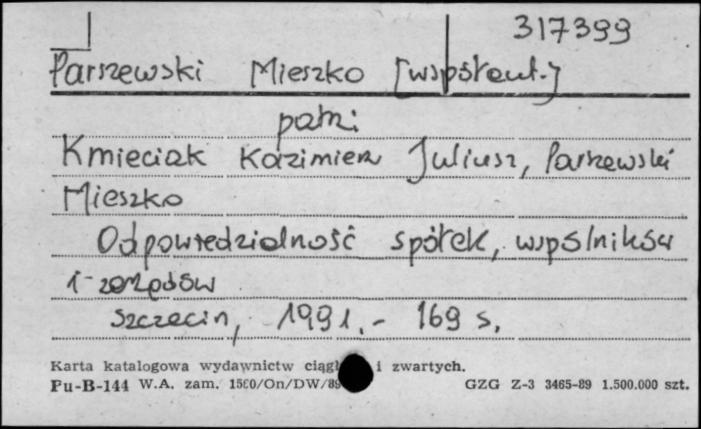 317399
Parszewski Mieszko [współaut.]
patrz
Kmieciak Kazimierz Juliusz, Parszewski
Mieszko
Odpowiedzialność spółek, wspólników
i zarządów
Szczecin, 1991. - 169 s.
Karta katalogowa wydawnictw ciągł i zwartych.
Pu-B-144 W.A. zam. 1560/On/DW/89 GZG Z-3 3465-89 1.500.000 szt.